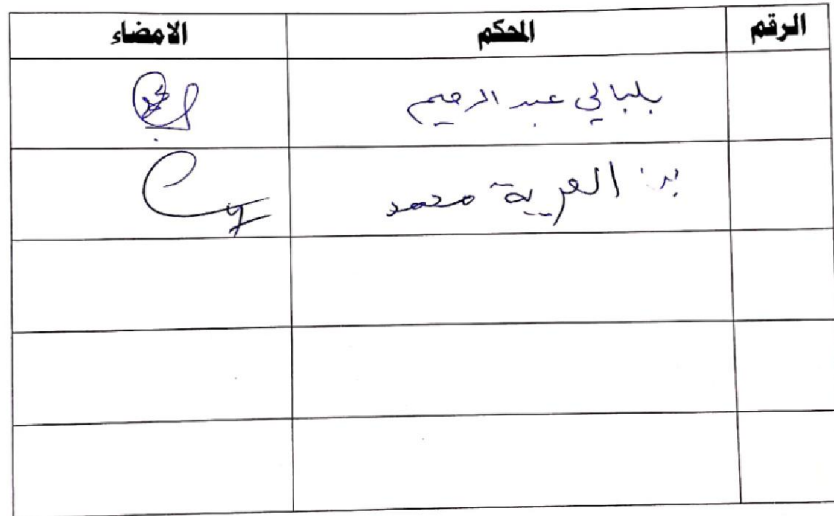 الرقم المحكم الامضاء
بلبالي عبد الرحيم
بن العربية محمد